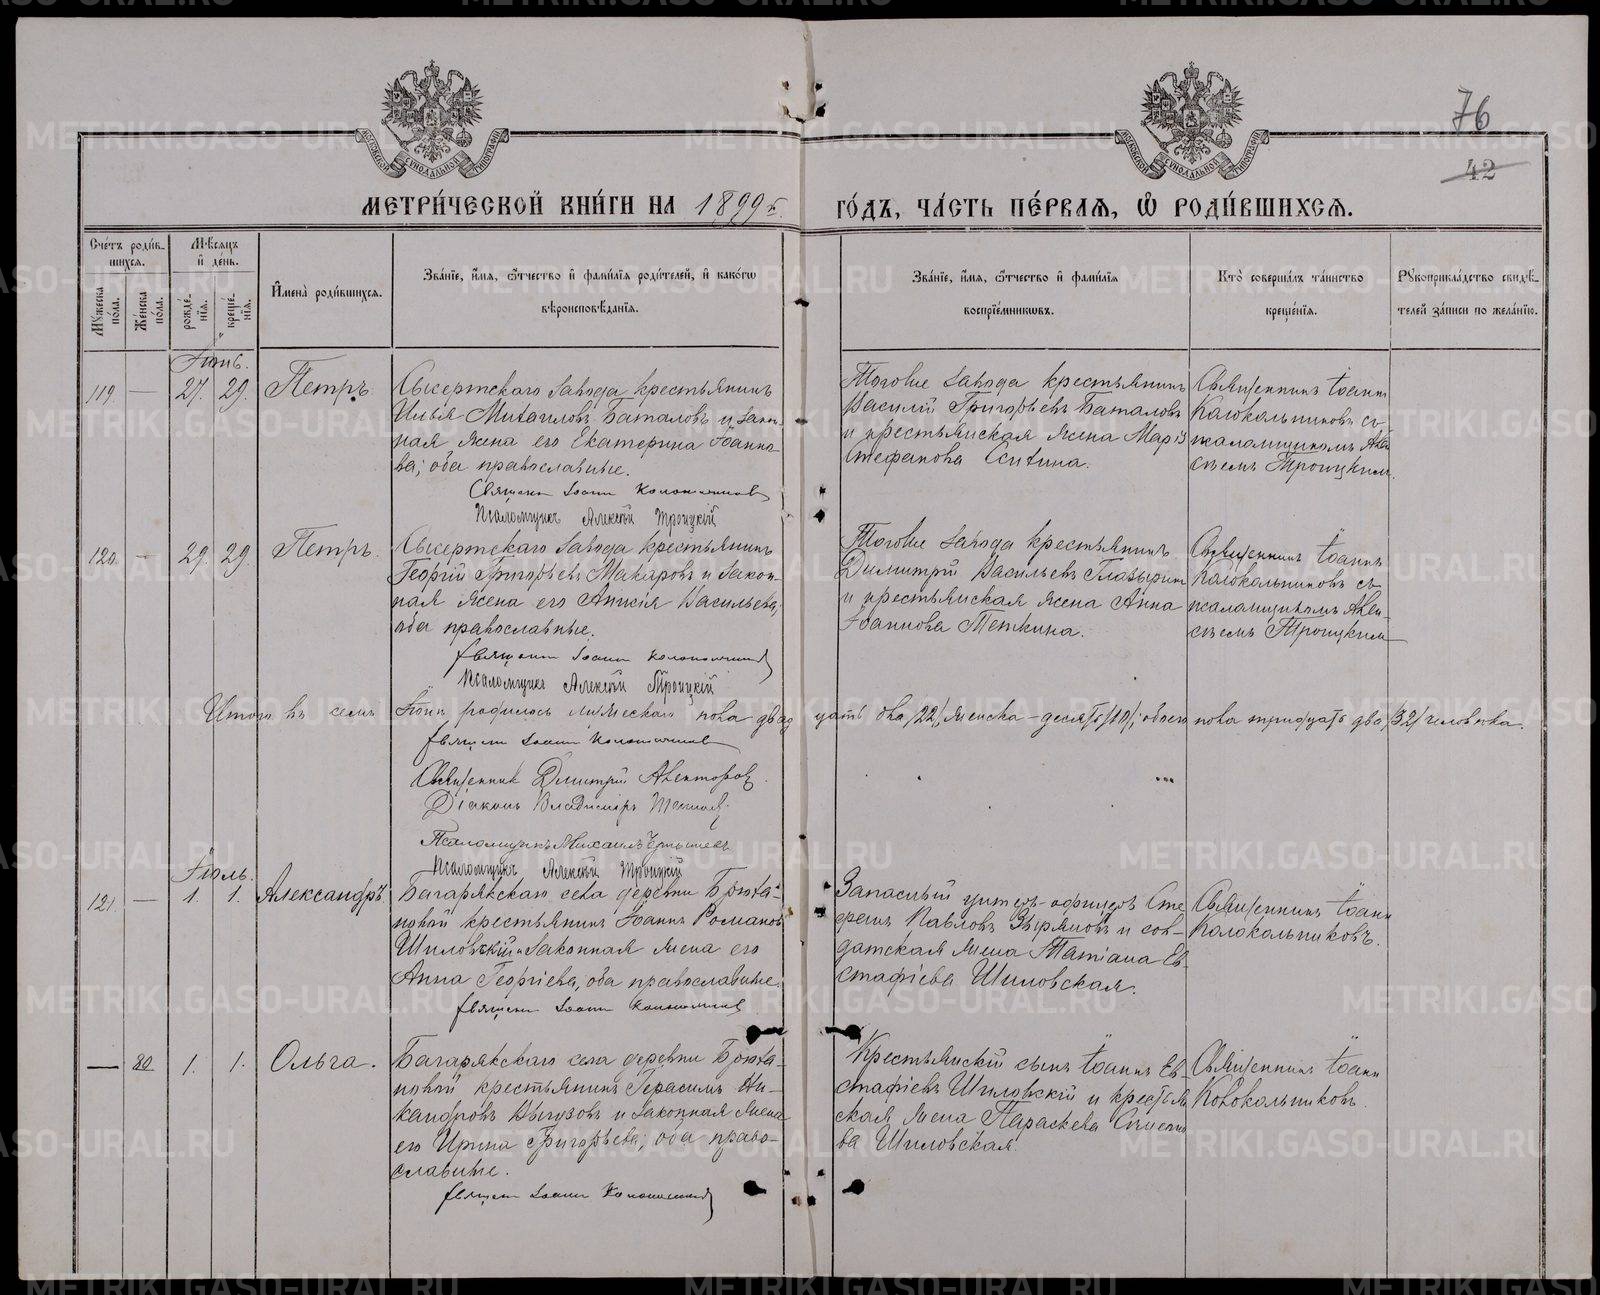 76
42
МОСКОВСКОЙ СѴНОДАЛЬНОЙ ТИПОГРАФІИ
МОСКОВСКОЙ СѴНОДАЛЬНОЙ ТИПОГРАФІИ
МЕТРИ́ЧЕСКОЙ КНИ́ГИ НА 1899 г. ГО́ДЪ, ЧА́СТЬ ПЕ́РВАЯ, Ѡ РОДИ́ВШИХСЯ.
Сче́тъ роди́в-
шихся.
Му́жеска по́ла.
Же́нска по́ла.
Мѣ́сяцъ
и де́нь.
рожде́-
нія.
креще́-
нія.
Имена̀ роди́вшихся.
Зва́ніе, и́мя, ѻ́тчество и фами́лія роди́телей, и како́гѡ
вѣроисповѣ́данія.
Зва́ніе, и́мя, ѻ́тчество и фами́лія
воспріе́мниковъ.
Кто̀ соверша́лъ та́инство
креще́нія.
Рукоприкла́дство свидѣ́-
телей за́писи по жела́нію.
Іюнь.
119. — 27. 29. Петръ.
Сысертскаго завода крестьянинъ
Илья Михаиловъ Баталовъ и закон-
ная жена его Екатерина Іоанно-
ва; оба православные.
Священн Іоанн Колокольников
Псаломщикъ Алексѣй Троицкій
Тогоже завода крестьянинъ
Василій Григорьевъ Баталовъ
и крестьянская жена Марія
Стефанова
Священникъ Іоаннъ
Колокольниковъ съ
псаломщикомъ Алек-
сѣемъ Троицкимъ.
120. — 29. 29. Петръ.
Сысертскаго завода крестьянинъ
Георгій Григорьевъ Макаровъ и закон-
ная жена его Анисія Васильева,
оба православные.
Священн Іоанн Колокольников
Псаломщикъ Алексѣй Троицкій
Тогоже завода крестьянинъ
Димитрій Васильевъ Глазыринъ
и крестьянская жена Анна
Іоаннова Теткина.
Священникъ Іоаннъ
Колокольниковъ съ
псаломщикомъ Алек-
сѣемъ Троицкимъ
Итого въ семъ Іюнѣ родилось мужескаго пола двадцать два /22/, женска – десять /10/, обоего пола тридцать два /32/ человѣка.
Священн Іоанн Колокольников
Священник Димитрій Авенторов
Діаконъ Владиміръ
Псаломщикъ Михаилъ
Псаломщикъ Алексѣй Троицкій
Іюль.
121. — 1. 1. Александръ
Багарякскаго села деревни Брюха-
новой крестьянинъ Іоаннъ Романовъ
Шиловскій и законная жена его
Анна Георгіева, оба православные.
Священн Іоанн Колокольников
Запасный унтеръ-офицеръ Сте-
фанъ Павловъ Зыряновъ и сол-
датская жена Татіана Ев-
стафіева Шиловская.
Священникъ Іоаннъ
Колокольниковъ.
— 80. 1. 1. Ольга.
Багарякскаго села деревни Брюха-
новой крестьянинъ Герасимъ Ни-
кандровъ и законная жена
его Ирина Григорьева, оба право-
славные.
Священн Іоанн Колокольников
Крестьянскій сынъ Іоаннъ Ев-
стафіевъ Шиловскій и крестьян-
ская жена Параскева
ва Шиловская.
Священникъ Іоаннъ
Колокольниковъ.
METRIKI.GASO-URAL.RU